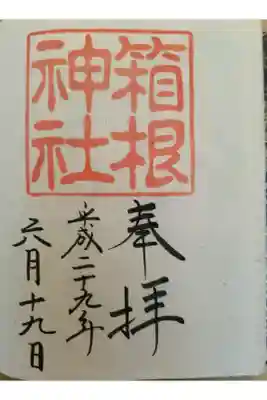 箱根
神社
奉拝
平成二十九年
六月十九日